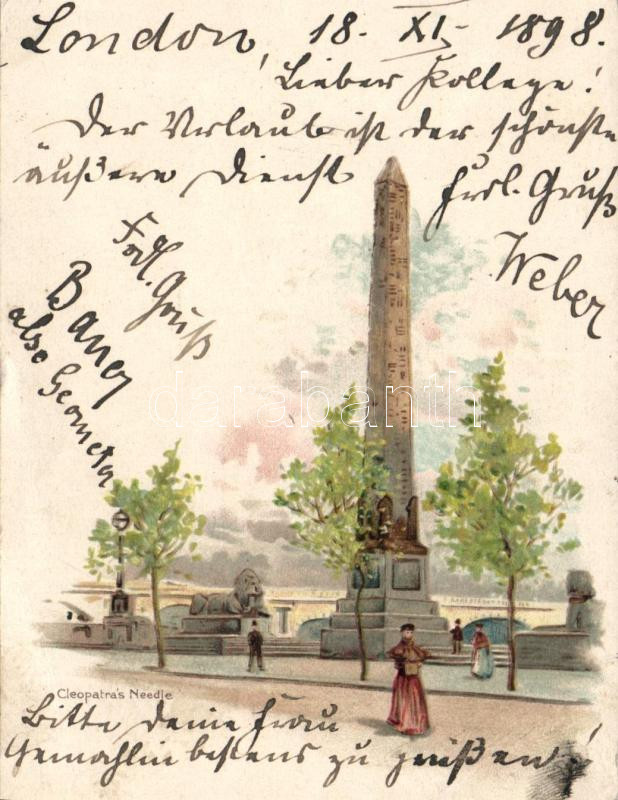 London, 18. XI. 1898.
Lieber Kollege!
Der Urlaub ist der schönste
äußere Dienst
Frdl. Gruß
Weber
Frdl. Gruß
Bauer
Geometer
darabanth
Cleopatra's Needle
Bitte deine Frau
Gemahlin bestens zu grüßen!